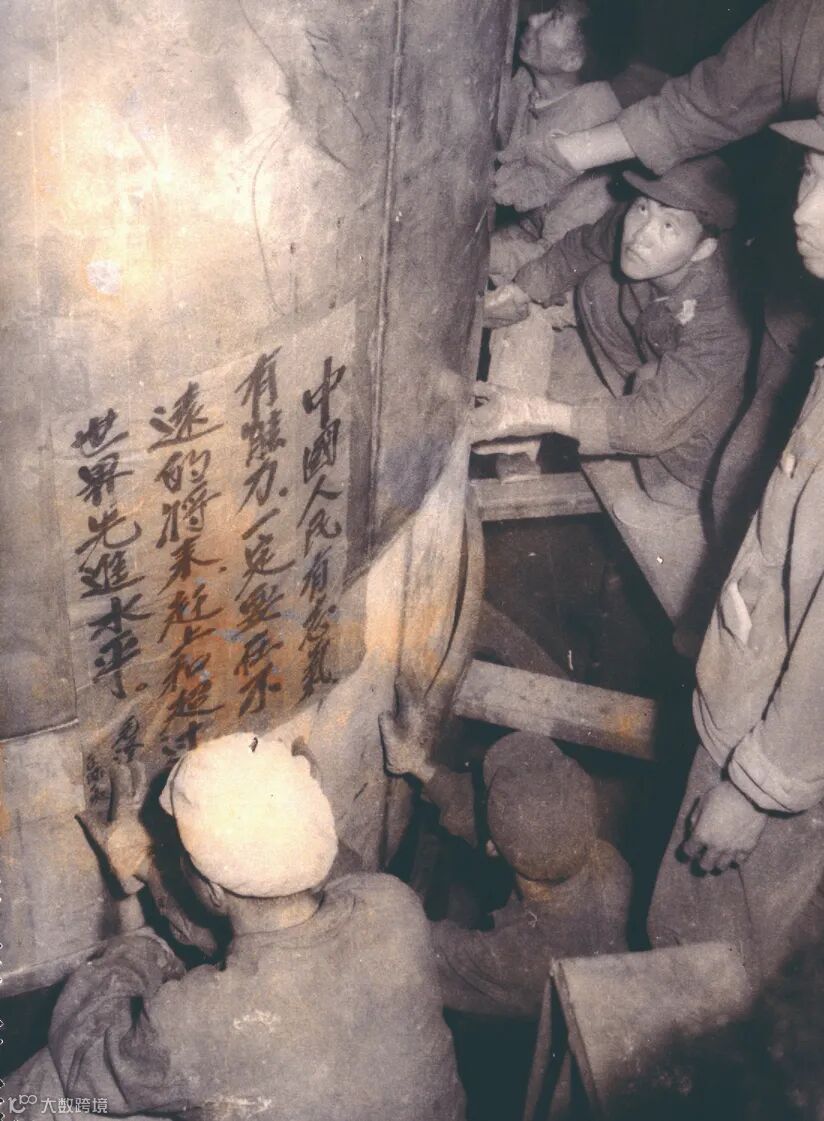 中國人民有志氣
有能力.一定要在不
遠的將來.赶上和超过
世界先進水平.
大数跨境